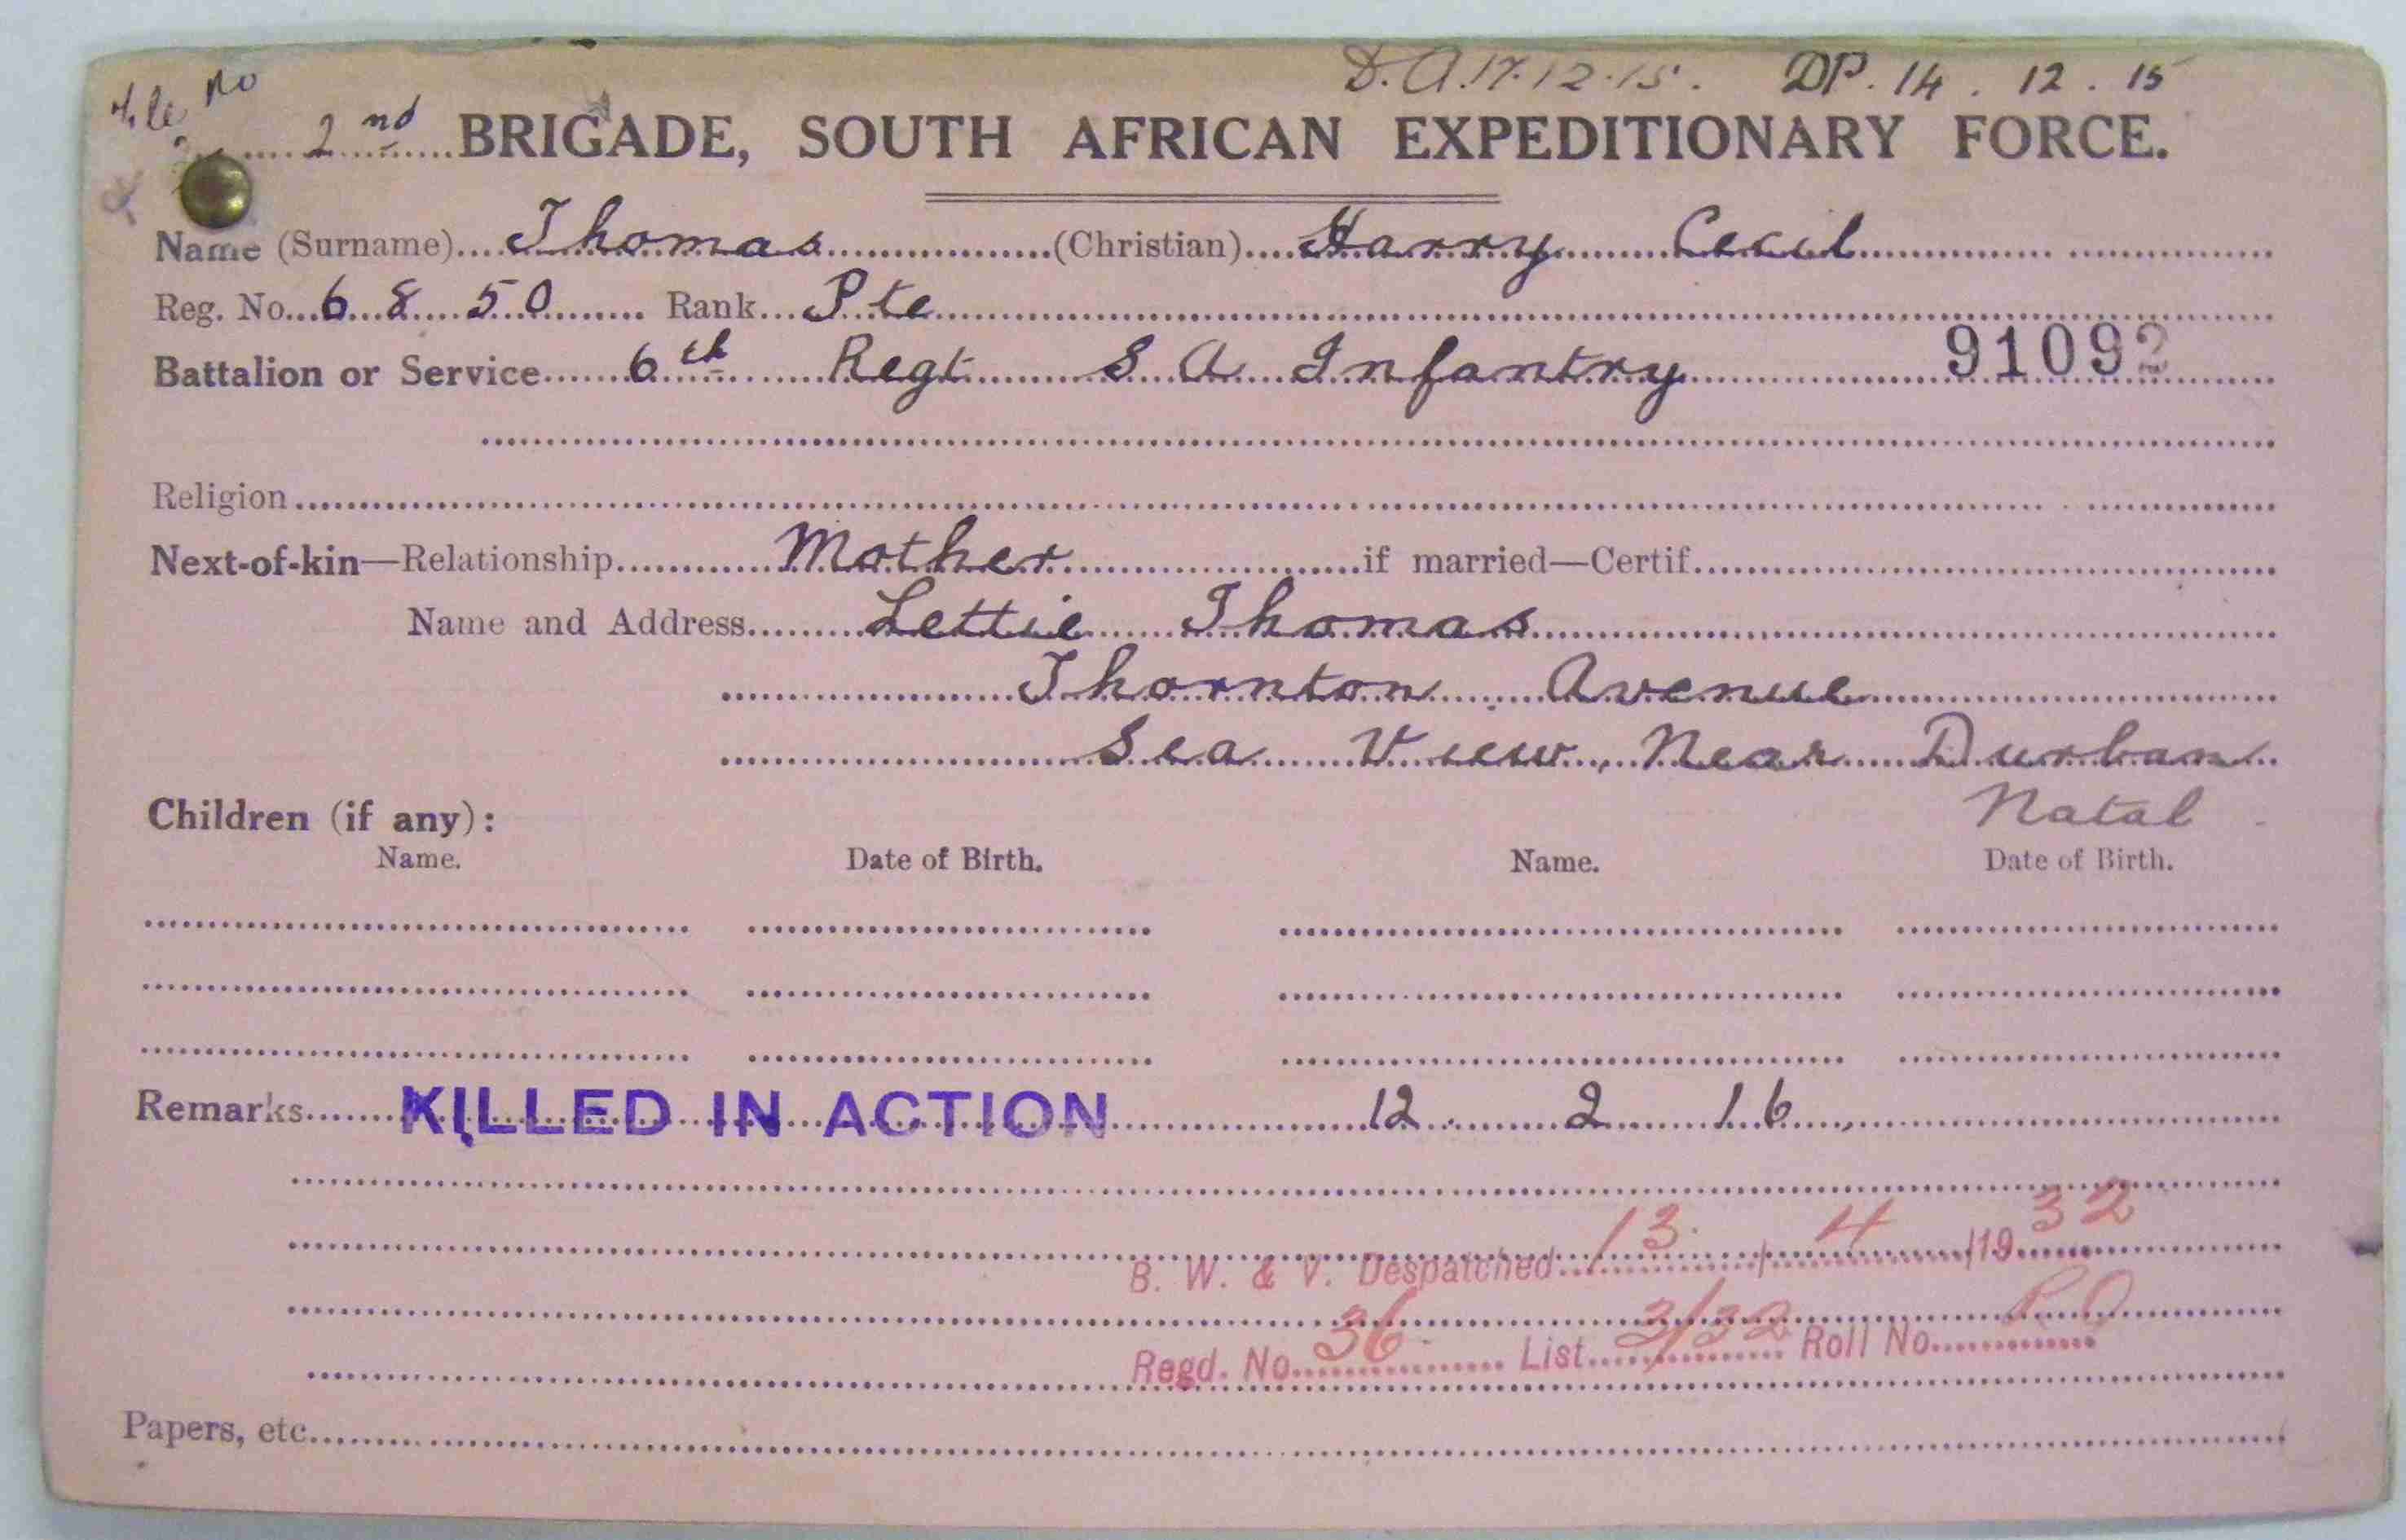 D.A. 17.12.15. DP. 14 . 12 . 15
No
2nd BRIGADE, SOUTH AFRICAN EXPEDITIONARY FORCE.
Name (Surname) Thomas (Christian) Harry Cecil
Reg. No. 6850 Rank Pte
Battalion or Service 6th Regt S A Infantry 91092
Religion
Next-of-kin—Relationship Mother if married—Certif.
Name and Address Lettie Thomas
Thornton Avenue
Sea View, Near Durban
Natal
Children (if any):
Name. Date of Birth. Name. Date of Birth.
Remarks KILLED IN ACTION 12 2 16
B. W. & V. Despatched 13 / 4 /1932
Regd. No. 36 List 3/32 Roll No.
Papers, etc.